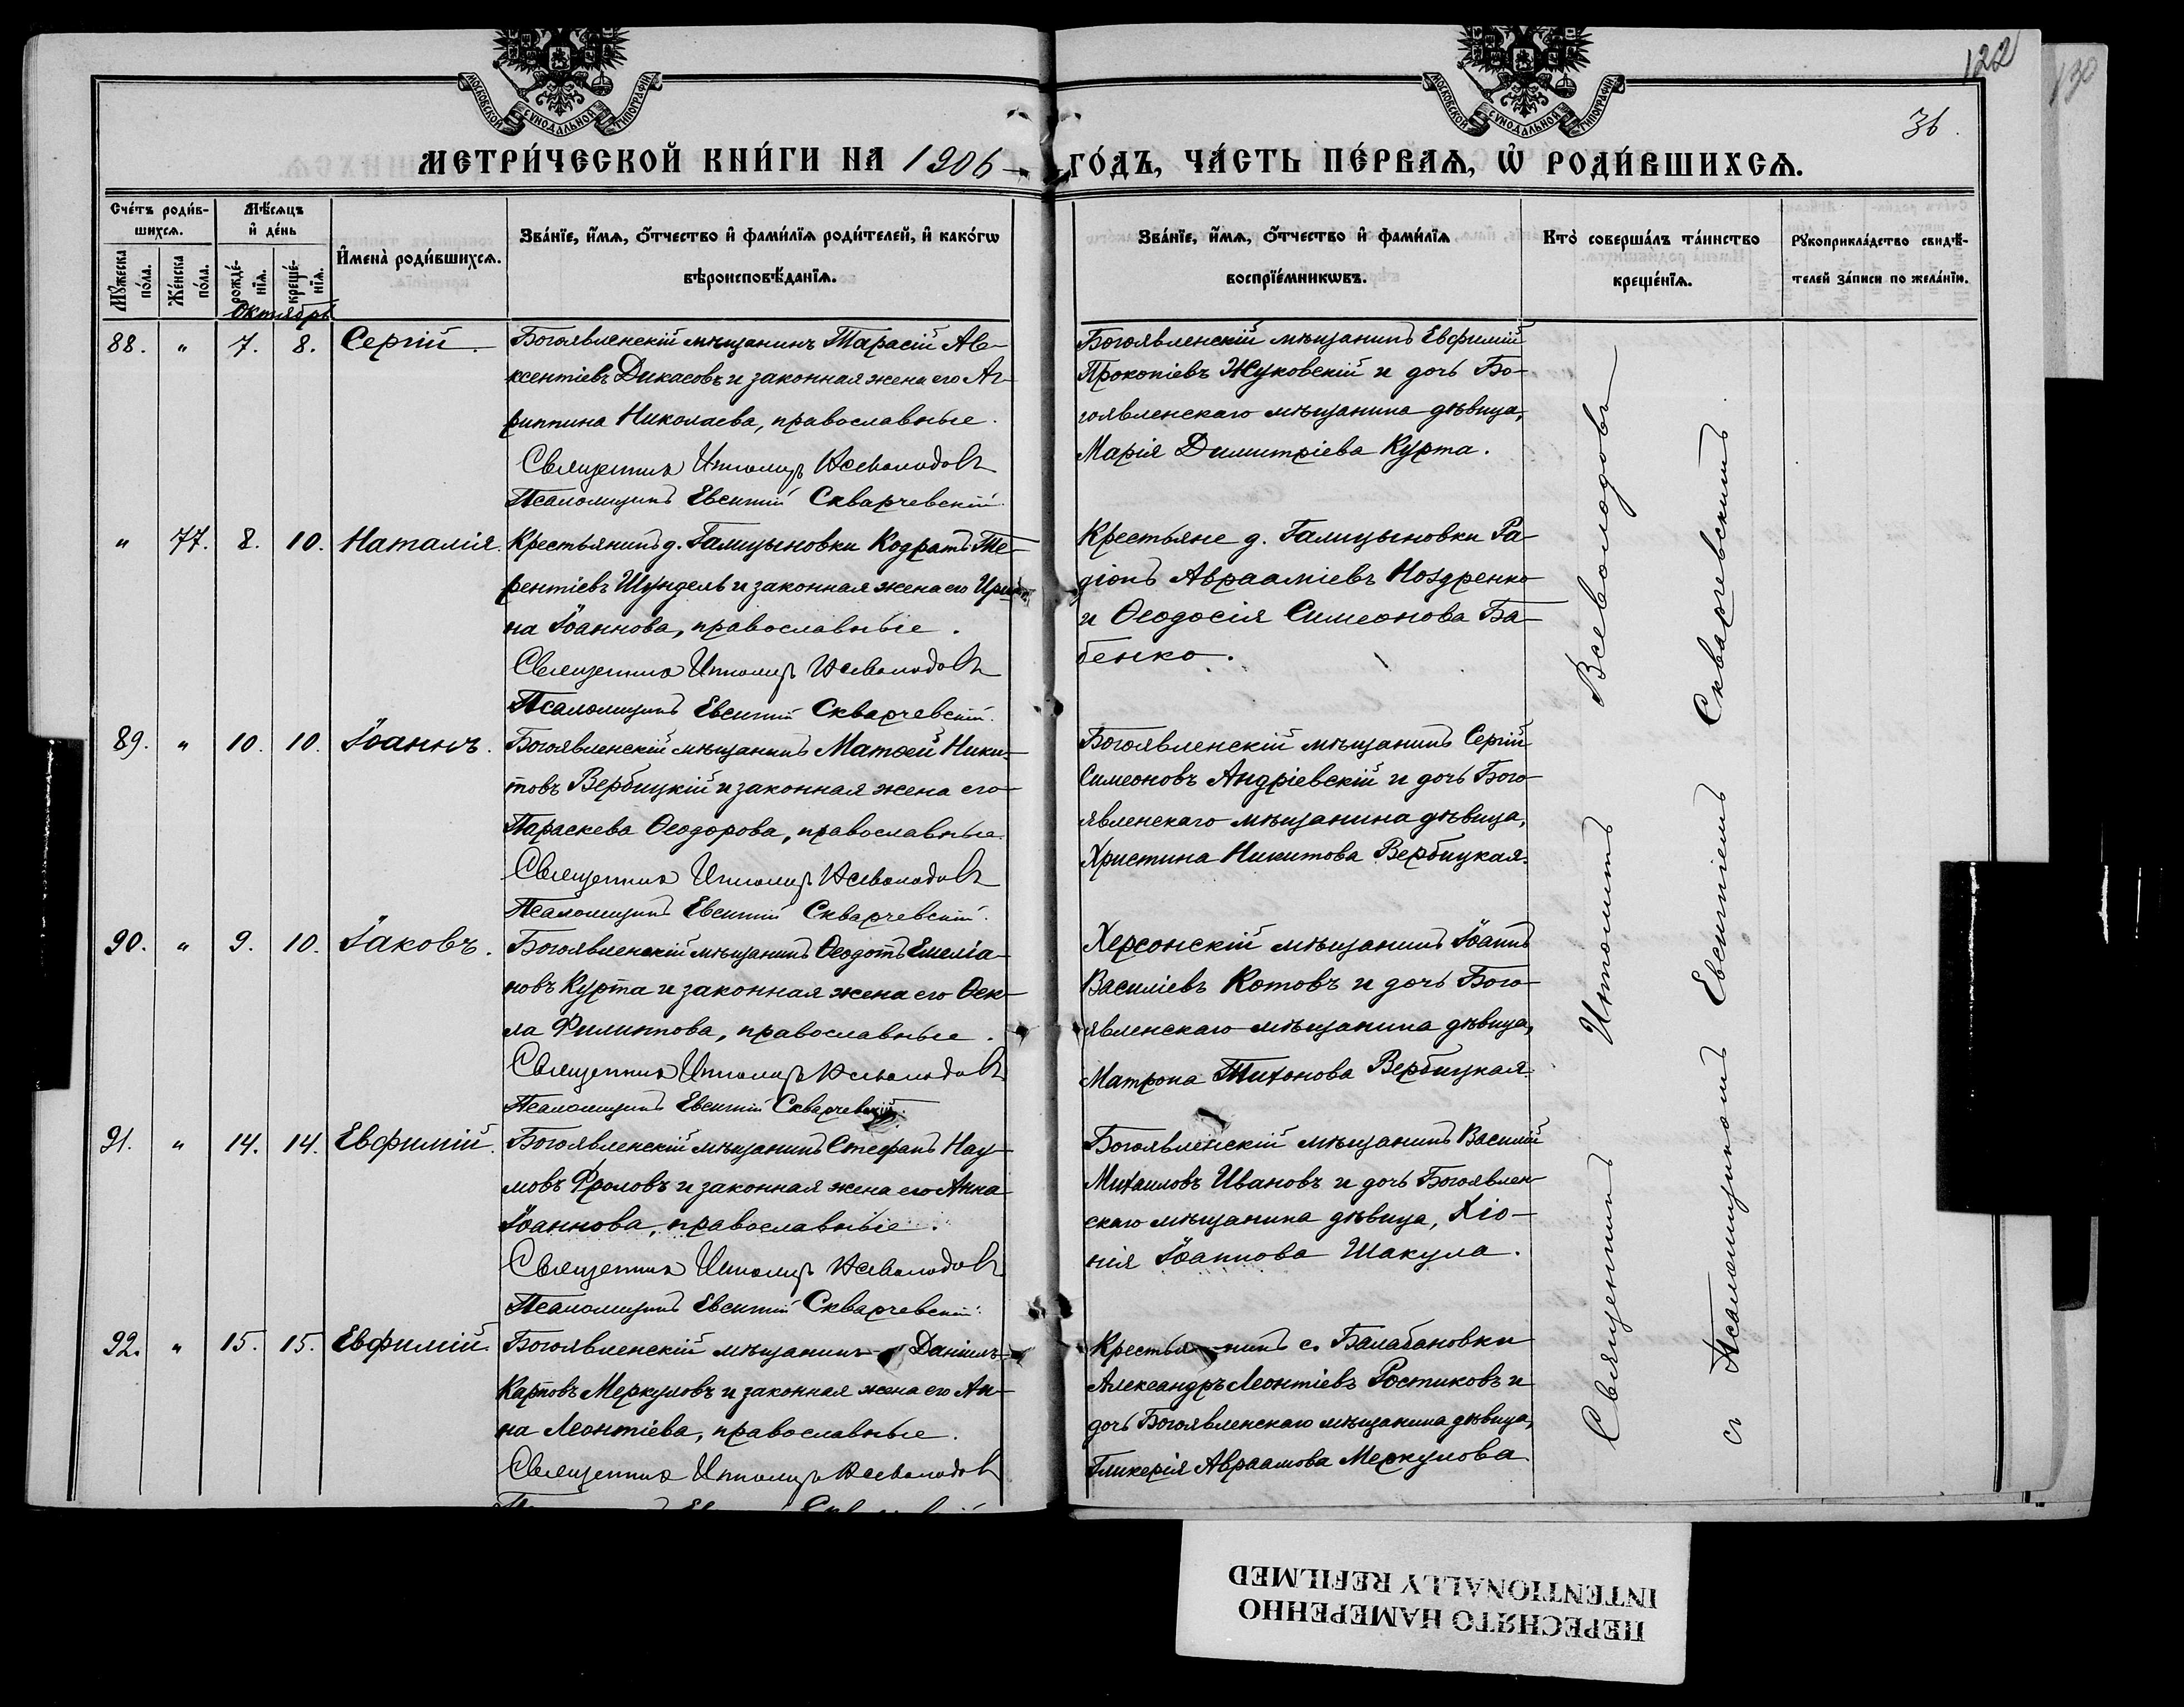 122
130
36.
МОСКОВСКОЙ СУНОДАЛЬНОЙ ТИПОГРАФІИ
МОСКОВСКОЙ СУНОДАЛЬНОЙ ТИПОГРАФІИ
МЕТРИ́ЧЕСКОЙ КНИ́ГИ НА 1906
ГО́ДЪ, ЧА́СТЬ ПЕ́РВАѦ, Ѽ РОДИ́ВШИХСѦ.
Сче́тъ роди́в-
шихсѧ.
Мꙋ́жеска по́ла.
Же́нска по́ла.
Мѣ́сѧцъ
и҆ де́нь
рожде́-
нїѧ.
креще́-
нїѧ.
И҆мена̀ роди́вшихсѧ.
Зва́нїе, и҆́мѧ, ѻ҆́тчество и҆ фами́лїѧ роди́телей, и҆ како́гѡ
вѣроисповѣ́данїѧ.
Зва́нїе, и҆́мѧ, ѻ҆́тчество и҆ фами́лїѧ
воспрїе́мникѡвъ.
Кто̀ соверша́лъ та́инство
креще́нїѧ.
Рꙋкоприкла́дство свидѣ́-
телей за́писи по жела́нїю.
Октябрь
88. " 7. 8. Сергій.
Богоявленскій мѣщанинъ Тарасій Ав-
ксентіевъ Дикасовъ и законная жена его Аг-
риппина Николаева, православные.
Священникъ Ипполитъ Всеволодовъ
Псаломщикъ Евсигній Скварчевскій.
Богоявленскій мѣщанинъ Евфимій
Прокопіевъ Жуковскій и дочь Бо-
гоявленскаго мѣщанина дѣвица,
Марія Димитріева Курта.
" 77. 8. 10. Наталія.
Крестьянинъ д. Галицыновки Кодратъ Те-
рентіевъ Шундель и законная жена его Ири-
на Іоаннова, православные.
Священникъ Ипполитъ Всеволодовъ
Псаломщикъ Евсигній Скварчевскій.
Крестьяне д. Галицыновки Ра-
діонъ Авраамiевъ Ноздренко
и Ѳеодосія Симеонова Ба-
бенко.
89. " 10. 10. Іоаннъ.
Богоявленскій мѣщанинъ Матѳей Ники-
товъ Вербицкій и законная жена его
Параскева Ѳеодорова, православные.
Священникъ Ипполитъ Всеволодовъ
Псаломщикъ Евсигній Скварчевскій.
Богоявленскій мѣщанинъ Сергій
Симеоновъ Андріевскій и дочь Бого-
явленскаго мѣщанина дѣвица,
Христина Никитова Вербицкая.
90. " 9. 10. Іаковъ.
Богоявленскій мѣщанинъ Ѳеодотъ Емеліа-
новъ Курта и законная жена его Ѳек-
ла Филиппова, православные.
Священникъ Ипполитъ Всеволодовъ
Псаломщикъ Евсигній Скварчевскій.
Херсонскій мѣщанинъ Іоаннъ
Василіевъ Котовъ и дочь Бого-
явленскаго мѣщанина дѣвица,
Матрона Тихонова Вербицкая.
91. " 14. 14. Евфимій.
Богоявленскій мѣщанинъ Стефанъ Нау-
мовъ Фроловъ и законная жена его Анна
Іоаннова, православные.
Священникъ Ипполитъ Всеволодовъ
Псаломщикъ Евсигній Скварчевскій.
Богоявленскій мѣщанинъ Василій
Михаиловъ Ивановъ и дочь Богоявлен-
скаго мѣщанина дѣвица, Хіо-
нія Іоаннова Шакула.
92. " 15. 15. Евфимій.
Богоявленскій мѣщанинъ Даніилъ
Карповъ Меркуловъ и законная жена его Ан-
на Леонтіева, православные.
Священникъ Ипполитъ Всеволодовъ
Крестьянинъ с. Балабановки
Александръ Леонтіевъ Ростиковъ и
дочь Богоявленскаго мѣщанина дѣвица,
Гликерія Авраамова Меркулова
Священникъ Ипполитъ Всеволодовъ
съ Псаломщикомъ Евсигніемъ Скварчевскимъ.
ПЕРЕСНЯТО НАМЕРЕННО
INTENTIONALLY REFILMED